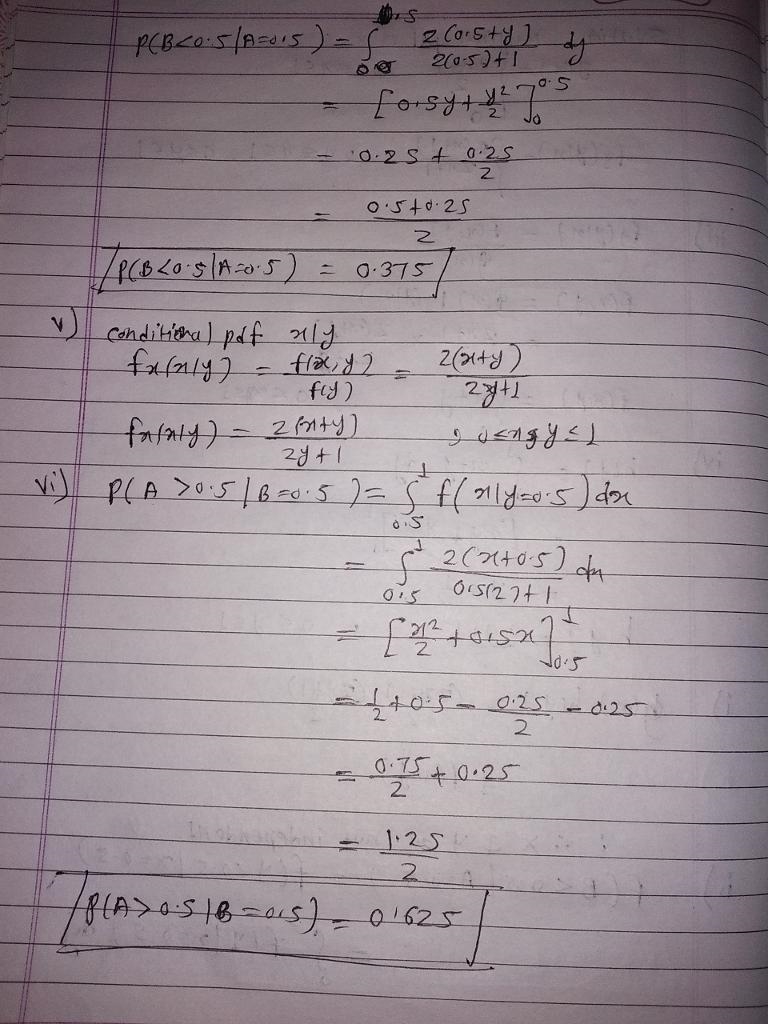 P(B<0.5|A=0.5) = ∫₀^0.5 2(0.5+y)/2(0.5)+1 dy
= [0.5y + y²/2]₀^0.5
= 0.25 + 0.25/2
= 0.5+0.25/2
P(B<0.5|A=0.5) = 0.375
v) conditional pdf x|y
fx(x|y) = f(x,y)/f(y) = 2(x+y)/2y+1
fx(x|y) = 2(x+y)/2y+1 ; 0≤x,y≤1
vi) P(A>0.5|B=0.5) = ∫0.5^1 f(x|y=0.5)dx
= ∫0.5^1 2(x+0.5)/0.5(2)+1 dx
= [x²/2 + 0.5x]0.5^1
= 1/2 + 0.5 - 0.25/2 - 0.25
= 0.75/2 + 0.25
= 1.25/2
P(A>0.5|B=0.5) = 0.625